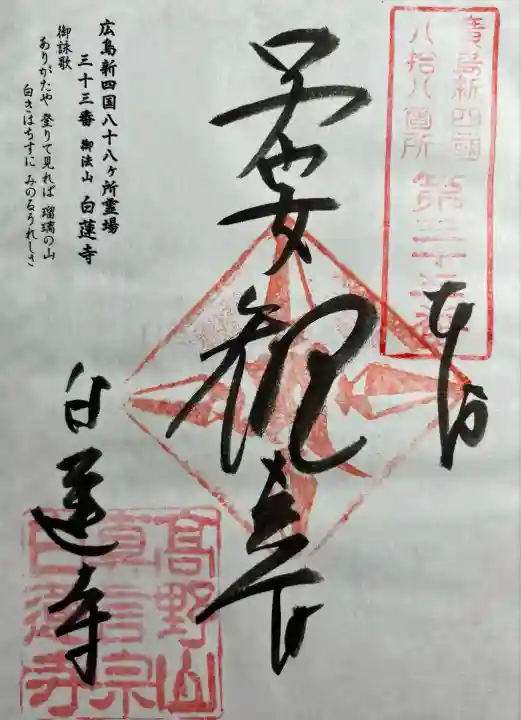 廣島新四國
八拾八箇所
第三十三番
奉拝
子安観音
広島新四国八十八ヶ所霊場
三十三番 御法山 白蓮寺
御詠歌
ありがたや 登りて見れば 瑠璃の山
白きはちすに みのるうれしさ
白蓮寺
高野山
真言宗
白蓮寺